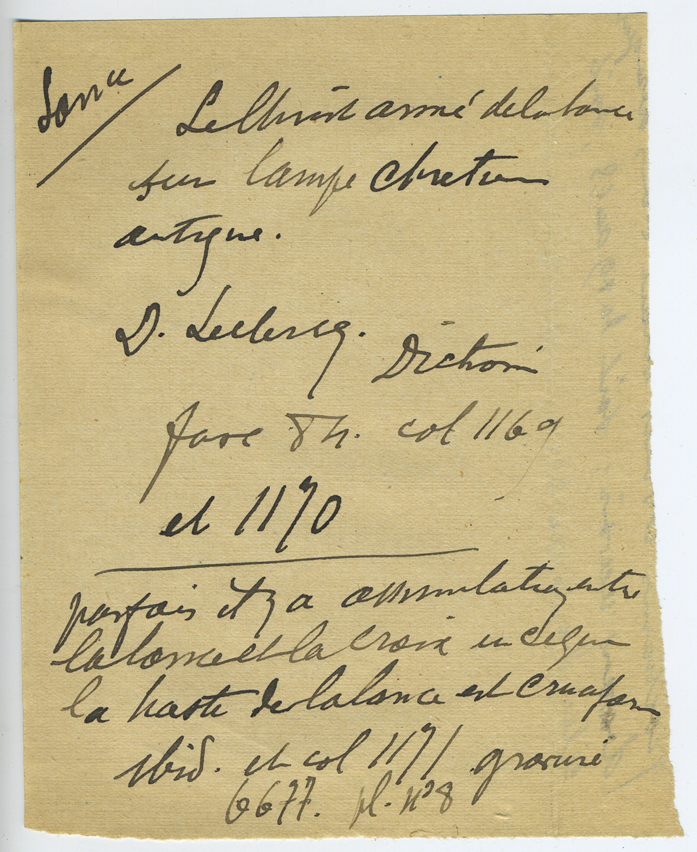 Lance
Le Christ armé de la lance
sur lampe chretien
antique.
D. Leclercq.
Dictionn
fasc 84. col 1169
et 1170
parfois il y a assimilation entre
la lance et la croix en ce que
la haste de la lance est cruciform
ibid. et col 1171 gravure
6677. pl. n° 8